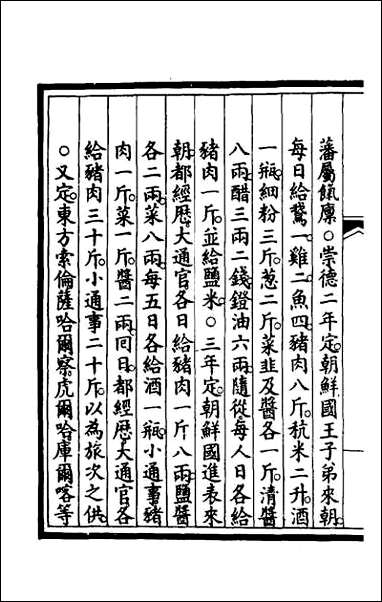 藩屬餼廩○崇德二年定朝鮮國王子弟來朝
每日給鵞一雞二魚四豬肉八斤秔米二升酒
一瓶細粉三斤葱二斤菜韭及醬各一斤清醬
八兩醋三兩二錢鐙油六兩隨從每人日各給
豬肉一斤並給鹽米○三年定朝鮮國進表來
朝都經歷大通官各日給豬肉一斤八兩鹽醬
各二兩菜八兩每五日各給酒一瓶小通事豬
肉一斤菜一斤醬二兩回日都經歷大通官各
給豬肉三十斤小通事二十斤以為旅次之供
○又定東方索倫薩哈爾察虎爾哈庫爾喀等